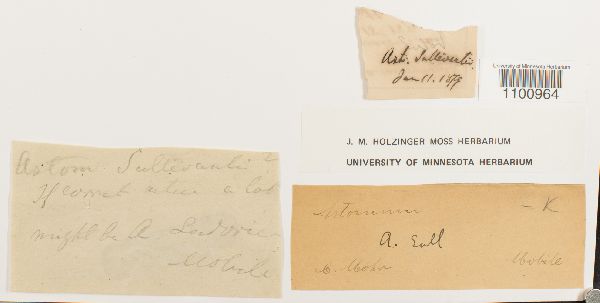 Ast. Sullivantii.
Jan 11. 1877
University of Minnesota Herbarium
1100964
J. M. HOLZINGER MOSS HERBARIUM
UNIVERSITY OF MINNESOTA HERBARIUM
Astom. Sullivantii?
If correct a lot
might be A Ludovic
Mobile
Astomum - K
A. Sull
C. Mohr Mobile